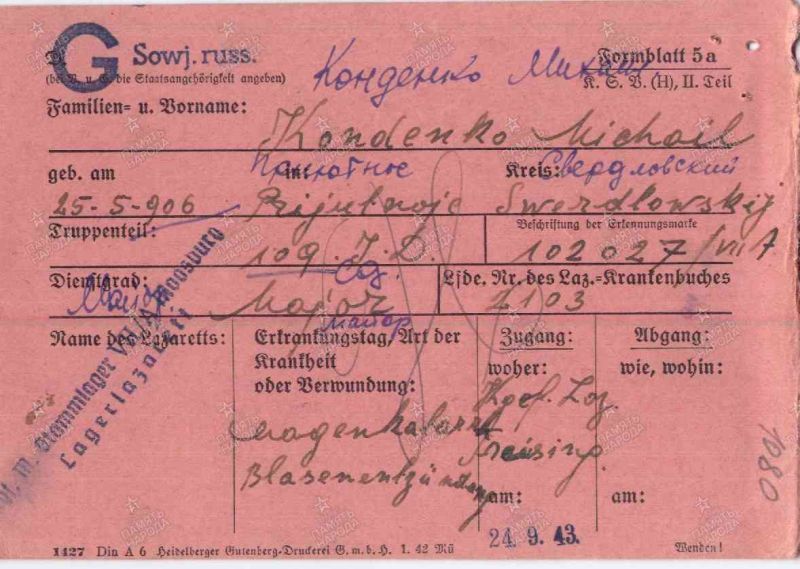 G Sowj. russ.
Formblatt 5a
(bei V. u. G. die Staatsangehörigkeit angeben)
K. S. V. (H), II. Teil
Конденко Михаил
Familien= u. Vorname:
Kondenko Michail
geb. am in: Kreis:
Приютное Свердловский
25-5-906 Prijutnoje Swerdlowskij
Truppenteil: Beschriftung der Erkennungsmarke
109. J.D. 102027/VII A
Dienstgrad: Lfde. Nr. des Laz.=Krankenbuches
Major 4103
майор
Name des Lazaretts: Erkrankungstag, Art der Krankheit oder Verwundung: Zugang: Abgang:
woher: wie, wohin:
Stammlager VII/A Moosburg
Lagerlazarett
Magenkatarrh
Blasenentzündung
Kgef. Laz.
Freising
am: am:
24. 9. 43.
1080
1427 Din A 6 Heidelberger Gutenberg=Druckerei G. m. b. H. 1. 42 Mü
Wenden!
ПАМЯТЬ НАРОДА